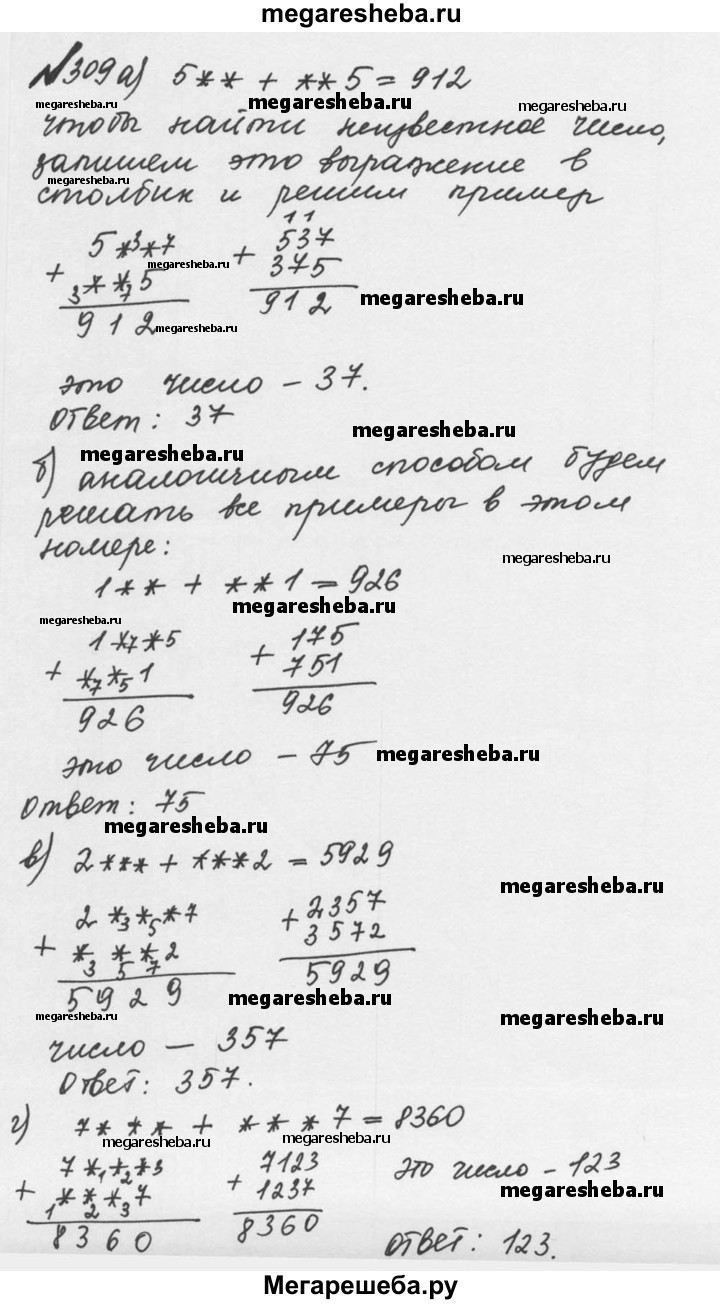 megaresheba.ru
№309 а) 5** + **5 = 912
megaresheba.ru megaresheba.ru megaresheba.ru
чтобы найти неизвестное число,
запишем это выражение в
megaresheba.ru
столбик и решим пример
5*3*7
+ 3**75
912
megaresheba.ru
megaresheba.ru
11
+ 537
375
912
megaresheba.ru
это число – 37.
ответ: 37
megaresheba.ru
megaresheba.ru
б) аналогичным способом будем
решать все примеры в этом
номере:
megaresheba.ru
1** + **1 = 926
megaresheba.ru
megaresheba.ru
1*7*5
+ *7*51
926
+ 175
751
926
это число – 75
megaresheba.ru
ответ: 75
megaresheba.ru
в) 2*** + ***2 = 5929
megaresheba.ru
2*3*5*7
+ *3*5*72
5929
+ 2357
3572
5929
megaresheba.ru
megaresheba.ru
megaresheba.ru
число — 357
ответ: 357.
г) 7*** + ***7 = 8360
megaresheba.ru megaresheba.ru
7*1*2*3
+ 1**2*37
8360
megaresheba.ru
+ 7123
1237
8360
это число – 123
megaresheba.ru
ответ: 123.
Мегарешеба.ру